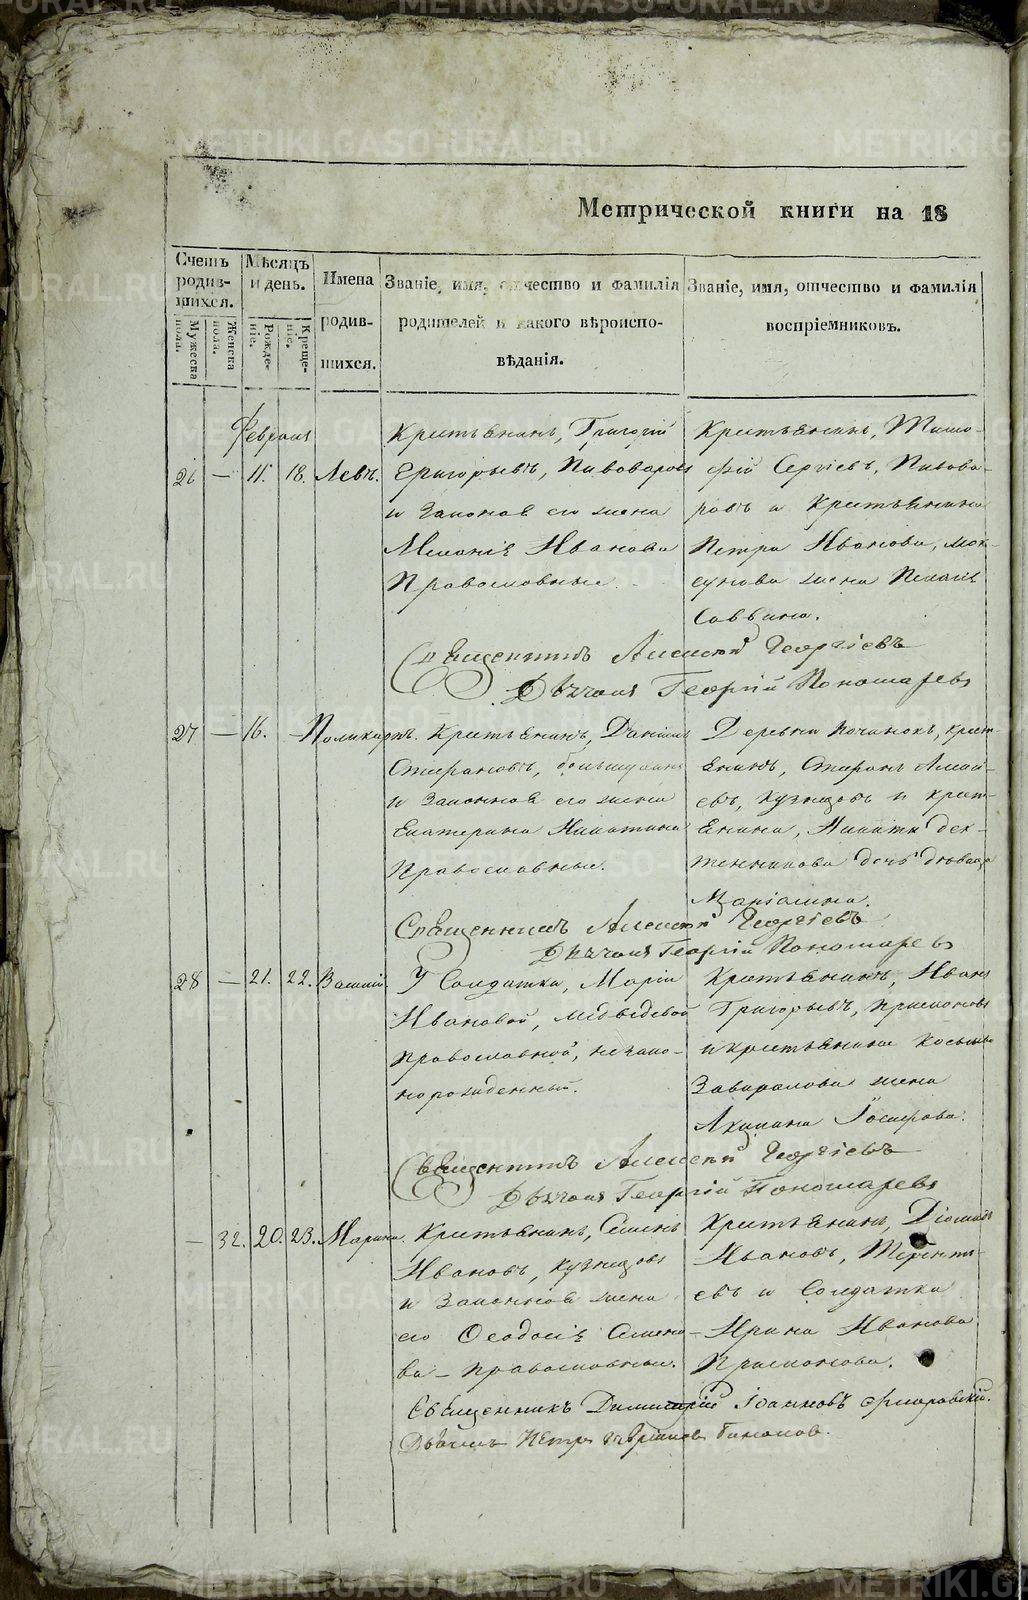 Метрической книги на 18
Счетъ родив-шихся.
Мужеска пола.
Женска пола.
Мѣсяцъ и день.
Рожде-ніе.
Креще-ніе.
Имена родив-шихся.
Званіе, имя, отчество и фамилія
родителей и какого вѣроиспо-
вѣданія.
Званіе, имя, отчество и фамилія
воспріемниковъ.
Февраля
26 — 11. 18. Левъ.
Крестьянинъ, Григорій
Григорьевъ, Пивоваровъ
и Законная его жена
Меланія Иванова
Православные
Крестьянинъ, Тимо-
фѣй Сергіевъ, Пивова-
ровъ и Крестьянина
Петра Иванова,
жена Пелагія
Саввина.
Священникъ Алексѣй Георгіевъ
Дьячокъ Георгій Пономаревъ
27 — 16. — Поликарпъ.
Крестьянинъ, Даніилъ
и Законная его жена
Екатерина Никитина
Православные.
Деревни Починокъ, крест-
янинъ,
Кузнецовъ и крест-
янина, Никиты
дочь дѣвица
Священникъ Алексѣй Георгіевъ
Дьячокъ Георгій Пономаревъ
28 — 21. 22. Василій.
У Солдатки, Маріи
Ивановой, Медвѣдевой
православной, незако-
норожденный.
Крестьянинъ, Иванъ
Григорьевъ,
и крестьянина Косьмы
жена
Акилина
Священникъ Алексѣй Георгіевъ
Дьячокъ Георгій Пономаревъ
— 32. 20. 23. Марина.
Крестьянинъ, Семенъ
Ивановъ, Кузнецовъ
и Законная жена
его Ѳеодосія Семено-
ва — православные.
Крестьянинъ,
Ивановъ, Терентъ-
евъ и Солдатка
Ирина Иванова
Священникъ Димитрій Іоанновъ Флоровскій.
Дьячокъ Петръ
METRIKI.GASO-URAL.RU